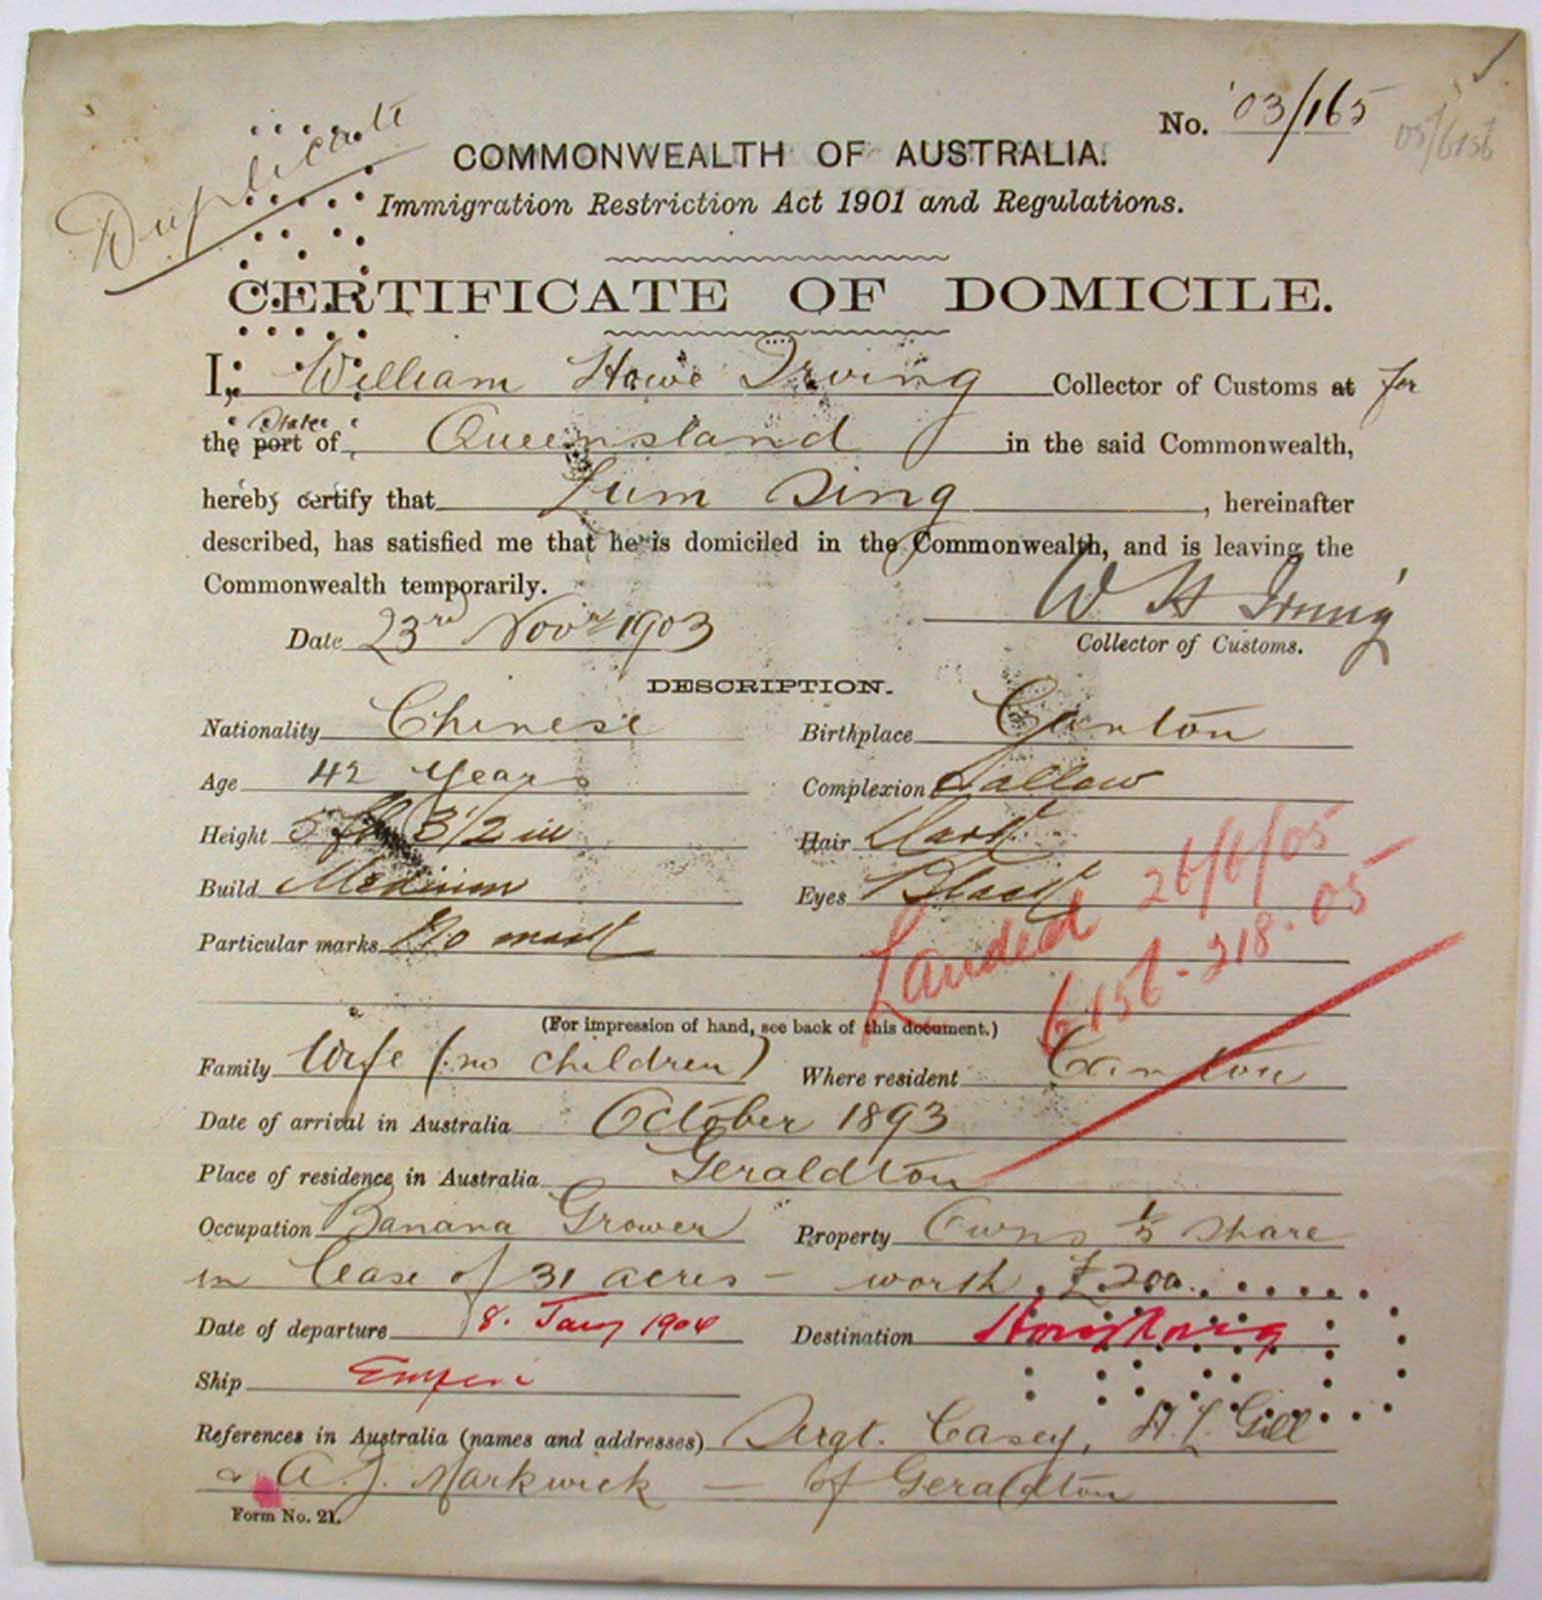 Duplicate
No. '03/165
COMMONWEALTH OF AUSTRALIA.
Immigration Restriction Act 1901 and Regulations.
CERTIFICATE OF DOMICILE.
I, William Howe Irving Collector of Customs at for
State
the port of Queensland in the said Commonwealth,
hereby certify that Lum Sing, hereinafter
described, has satisfied me that he is domiciled in the Commonwealth, and is leaving the
Commonwealth temporarily.
W H Irving
Date 23rd Novr 1903
Collector of Customs.
DESCRIPTION.
Nationality Chinese Birthplace Canton
Age 42 years Complexion Sallow
Height 5 ft 3 1/2 in Hair Dark
Build Medium Eyes Black
Particular marks No mark
Landed 26/6/05
(For impression of hand, see back of this document.)
Family Wife (no children) Where resident Canton
Date of arrival in Australia October 1893
Place of residence in Australia Geraldton
Occupation Banana Grower Property Owns 1/5 share
in lease of 31 acres - worth £200
Date of departure 8. Jany 1904 Destination Hongkong
Ship Empire
References in Australia (names and addresses) Sergt. Casey, H. L. Gill
& A. J. Markwick — of Geraldton
Form No. 21.